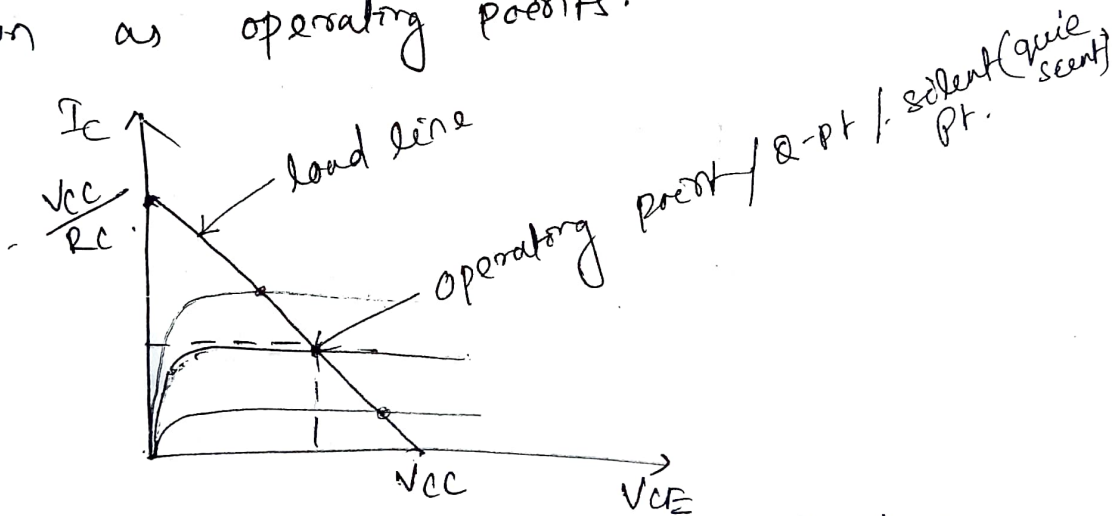 as operating points.
IC
load line
VCC
RC
operating point / Q-pt / silent (quie
scent)
Pt.
VCC
VCE